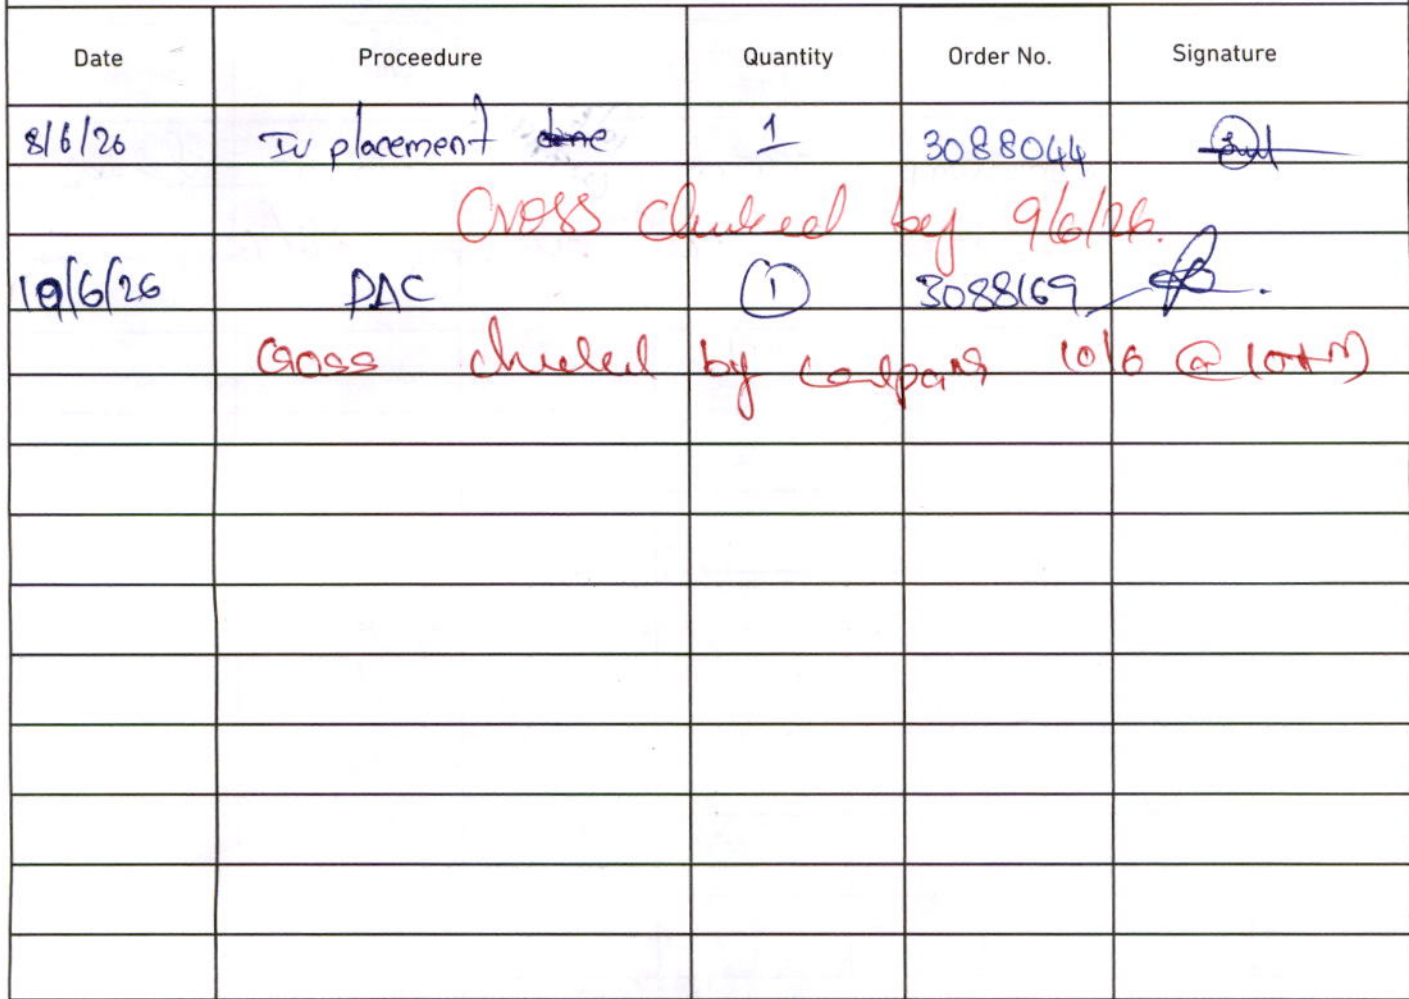 Date Proceedure Quantity Order No. Signature
8/6/26 IV placement done 1 3088044
Cross checked by 9/6/26.
10/6/26 PAC 1 3088169
Cross checked by 10/6 @ 10AM